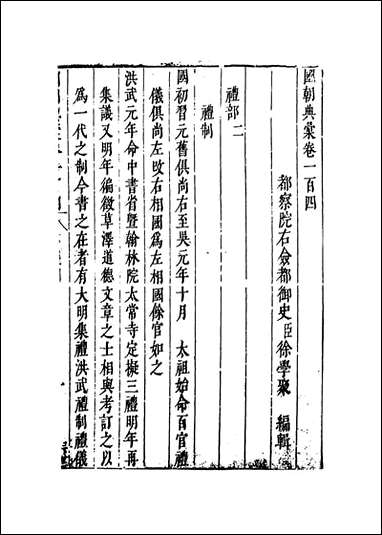 國朝典彙卷一百四
都察院右僉都御史臣徐學聚 編輯
禮部二
禮制
國初習元舊俱尚右至吳元年十月 太祖始命百官禮
儀俱尚左改右相國爲左相國餘官如之
洪武元年命中書省暨翰林院太常寺定擬三禮明年再
集議又明年徧徵草澤道德文章之士相與考訂之以
爲一代之制今書之在者有大明集禮洪武禮制禮儀